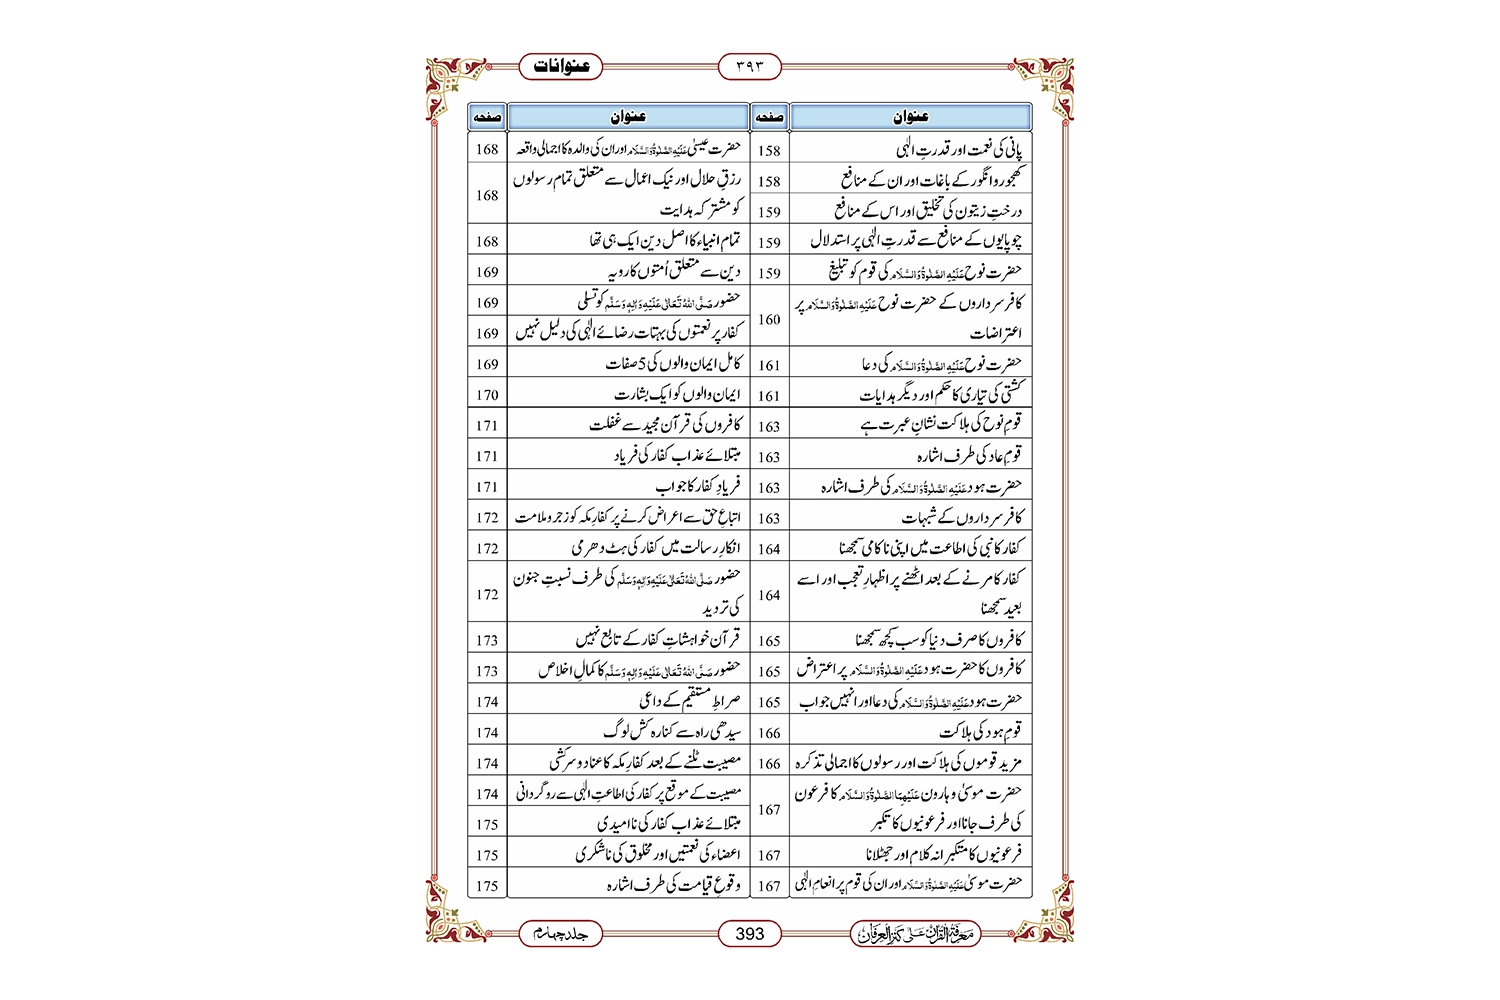 عنوانات
۳۹۳
عنوان صفحہ
پانی کی نعمت اور قدرتِ الٰہی 158
کھجور و انگور کے باغات اور ان کے منافع 158
درختِ زیتون کی تخلیق اور اس کے منافع 159
چوپایوں کے منافع سے قدرتِ الٰہی پر استدلال 159
حضرت نوح عَلَیْہِ الصَّلٰوۃُ وَالسَّلَام کی قوم کو تبلیغ 159
کافر سرداروں کے حضرت نوح عَلَیْہِ الصَّلٰوۃُ وَالسَّلَام پر
اعتراضات 160
حضرت نوح عَلَیْہِ الصَّلٰوۃُ وَالسَّلَام کی دعا 161
کشتی کی تیاری کا حکم اور دیگر ہدایات 161
قومِ نوح کی ہلاکت نشانِ عبرت ہے 163
قومِ عاد کی طرف اشارہ 163
حضرت ہود عَلَیْہِ الصَّلٰوۃُ وَالسَّلَام کی طرف اشارہ 163
کافر سرداروں کے شبہات 163
کفار کا نبی کی اطاعت میں اپنی ناکامی سمجھنا 164
کفار کا مرنے کے بعد اٹھنے پر اظہارِ تعجب اور اسے
بعید سمجھنا 164
کافروں کا صرف دنیا کو سب کچھ سمجھنا 165
کافروں کا حضرت ہود عَلَیْہِ الصَّلٰوۃُ وَالسَّلَام پر اعتراض 165
حضرت ہود عَلَیْہِ الصَّلٰوۃُ وَالسَّلَام کی دعا اور انہیں جواب 165
قومِ ہود کی ہلاکت 166
مزید قوموں کی ہلاکت اور رسولوں کا اجمالی تذکرہ 166
حضرت موسیٰ و ہارون عَلَیْہِمَا الصَّلٰوۃُ وَالسَّلَام کا فرعون
کی طرف جانا اور فرعونیوں کا تکبر 167
فرعونیوں کا متکبرانہ کلام اور جھٹلانا 167
حضرت موسیٰ عَلَیْہِ الصَّلٰوۃُ وَالسَّلَام اور ان کی قوم پر انعامِ الٰہی 167
عنوان صفحہ
حضرت عیسیٰ عَلَیْہِ الصَّلٰوۃُ وَالسَّلَام اور ان کی والدہ کا اجمالی واقعہ 168
رزقِ حلال اور نیک اعمال سے متعلق تمام رسولوں
کو مشترکہ ہدایت 168
تمام انبیاء کا اصل دین ایک ہی تھا 168
دین سے متعلق اُمتوں کا رویہ 169
حضور صَلَّی اللہُ تَعَالٰی عَلَیْہِ وَاٰلِہٖ وَسَلَّم کو تسلی 169
کفار پر نعمتوں کی بہتات رضائے الٰہی کی دلیل نہیں 169
کامل ایمان والوں کی 5 صفات 169
ایمان والوں کو ایک بشارت 170
کافروں کی قرآن مجید سے غفلت 171
مبتلائے عذاب کفار کی فریاد 171
فریادِ کفار کا جواب 171
اتباعِ حق سے اعراض کرنے پر کفارِ مکہ کو زجر و ملامت 172
انکارِ رسالت میں کفار کی ہٹ دھرمی 172
حضور صَلَّی اللہُ تَعَالٰی عَلَیْہِ وَاٰلِہٖ وَسَلَّم کی طرف نسبتِ جنون
کی تردید 172
قرآن خواہشاتِ کفار کے تابع نہیں 173
حضور صَلَّی اللہُ تَعَالٰی عَلَیْہِ وَاٰلِہٖ وَسَلَّم کا کمالِ اخلاص 173
صراطِ مستقیم کے داعی 174
سیدھی راہ سے کنارہ کش لوگ 174
مصیبت ٹلنے کے بعد کفارِ مکہ کا عناد و سرکشی 174
مصیبت کے موقع پر کفار کی اطاعتِ الٰہی سے روگردانی 174
مبتلائے عذاب کفار کی ناامیدی 175
اعضاء کی نعمتیں اور مخلوق کی ناشکری 175
وقوعِ قیامت کی طرف اشارہ 175
معرفۃ القرآن علی کنز العرفان
393
جلد چہارم